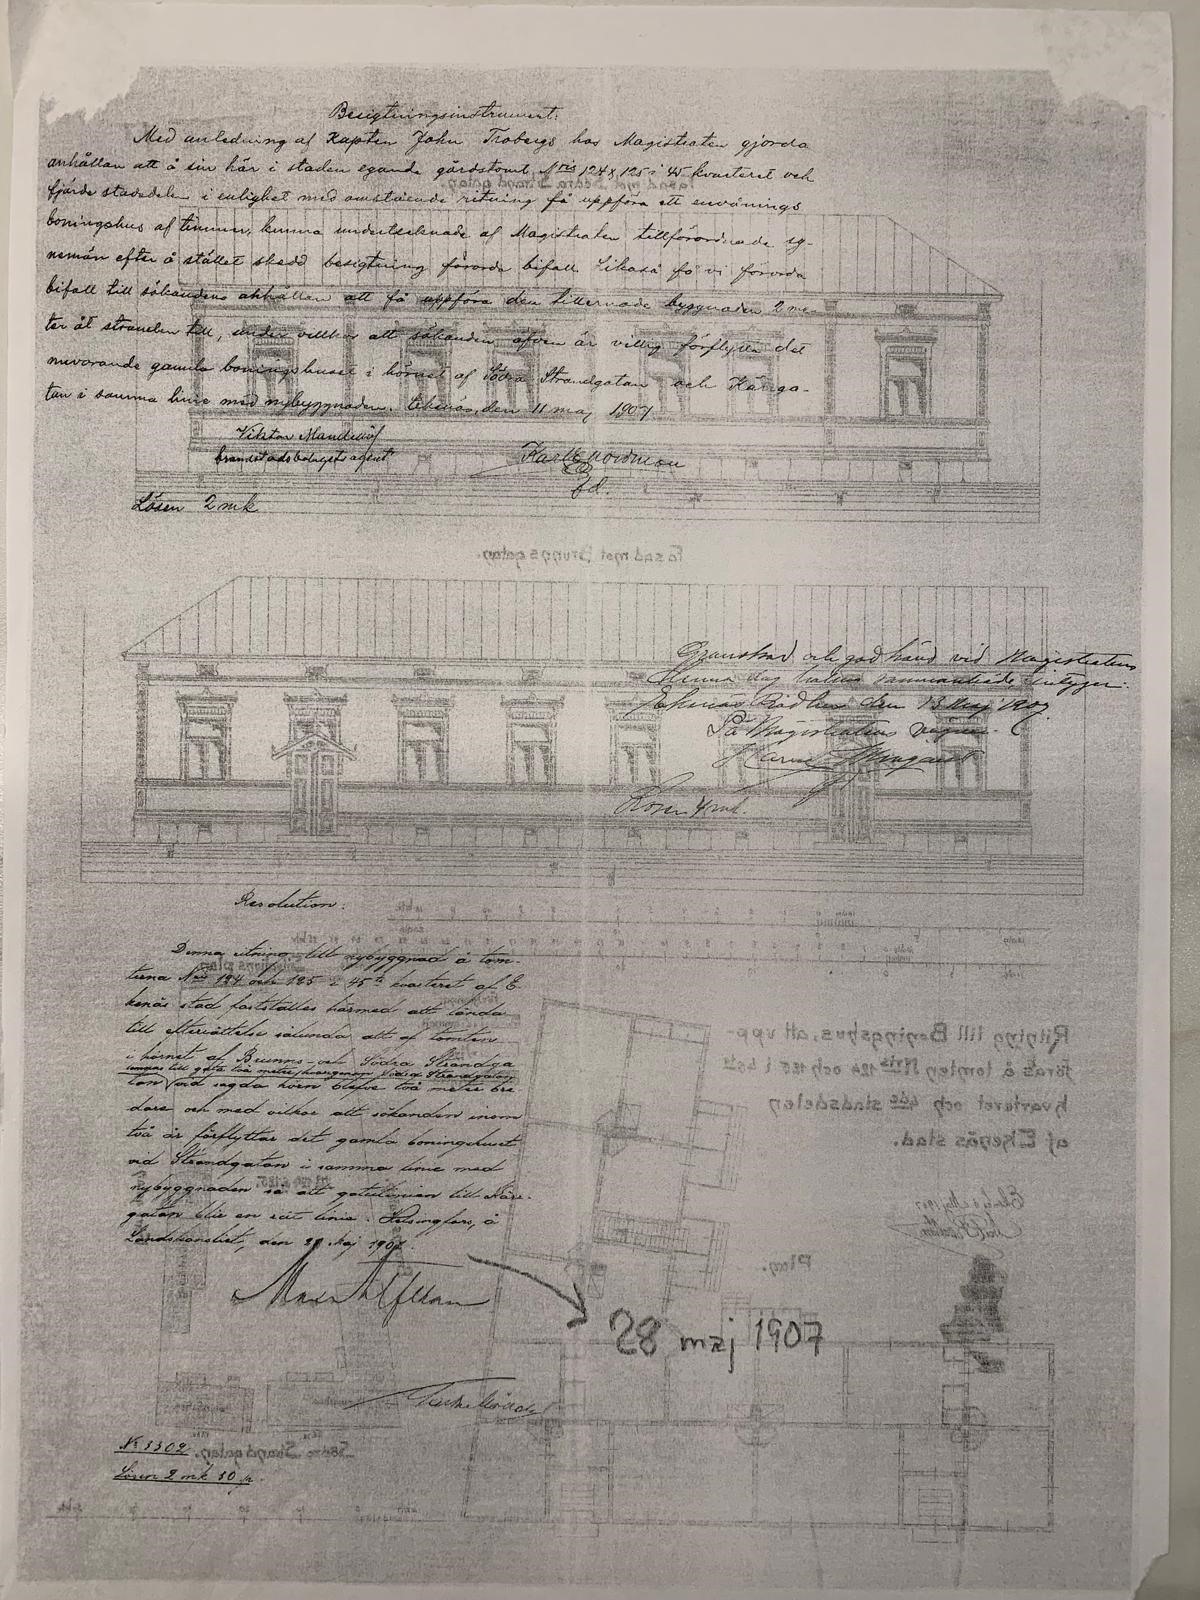 Besigtningsinstrument:
Med anledning af Kapten John Trobergs hos Magistraten gjorda
anhållan att å sin här i staden egande gårdstomt Nris 124 & 125 i 45 kvarteret och
fjärde stadsdelen i enlighet med omstående ritning få uppföra ett envånings
boningshus af timmer, kunna undertecknade af Magistraten tillförordnade sy-
nemän efter å stället skedd besigtning förorda bifall. Likaså få vi förorda
bifall till sökandens anhållan att få uppföra den tillernade byggnaden 2 me-
ter åt stranden till, under villkor att sökanden äfven är villig förflytta det
nuvarande gamla boningshuset i hörnet af Södra Strandgatan och
tan i samma linie med nybyggnaden. Ekenäs, den 11 maj 1907
Viktor
brandstodsbolagets agent
Karl
Lösen 2 mk
Fasad mot Södra Strandgatan.
Fasad mot Brunnsgatan.
Granskad och godkänd vid Magistratens
denna dag hållna sammanträde, intygar.
Ekenäs Rådhus den 13 Maj 1907.
På Magistratens vägnar:
Lösen 4 mk.
Resolution.
Denna ritning till nybyggnad å tom-
terna Nris 124 och 125 i 45te kvarteret af E-
kenäs stad fastställes härmed att lända
till efterrättelse sålunda att af tomten
i hörnet af Brunns- och Södra Strandga
till gata två meter, hvarigenom Södra Strandgatan
tan vid sagda hörn blefve två meter bre-
dare och med vilkor att sökanden inom
två år förflyttar det gamla boningshuset
vid Strandgatan i samma linie med
nybyggnaden så att gatulinien till
gatan blir en rät linie. Helsingfors, å
Landskansliet, den 28 Maj 1907.
28 maj 1907
No 3302.
Lösen 2 mk 50 p.
Situations plan
Ritning till Boningshus, att upp-
föras å tomten Nris 124 och 125 i 45te
kvarteret och 4de stadsdelen
af Ekenäs stad.
Plan.
Södra Strandgatan.